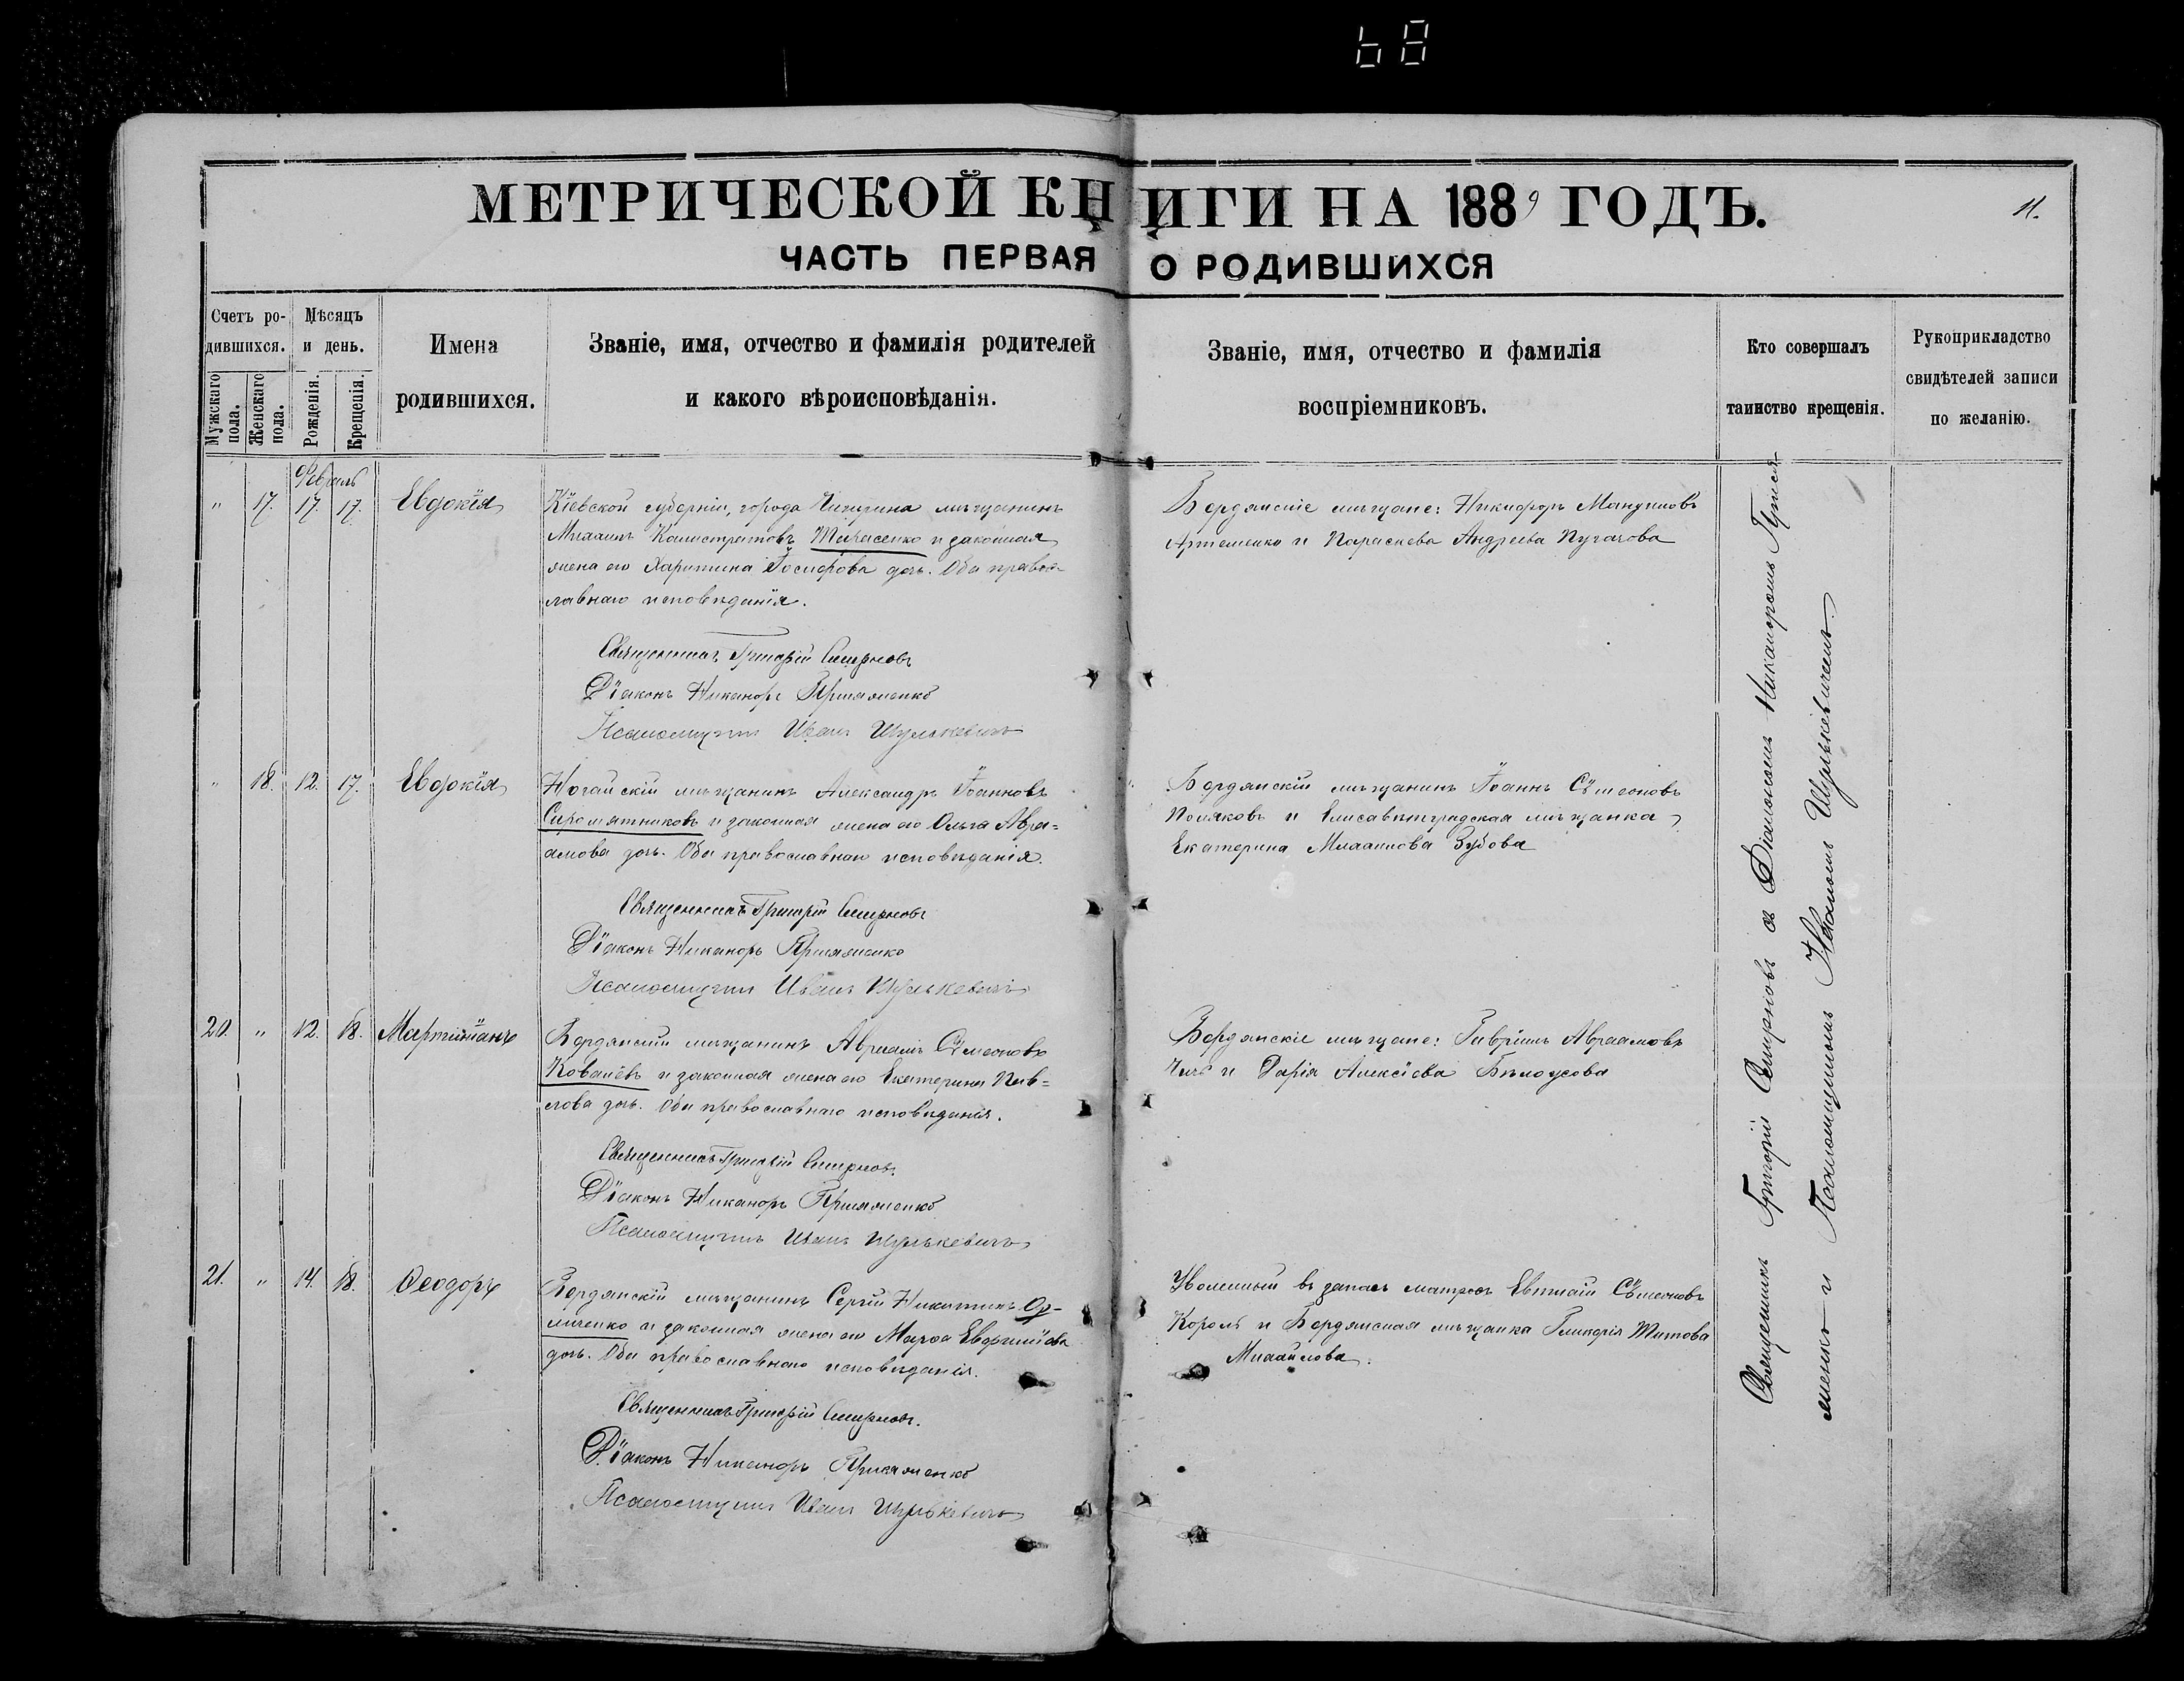 68
МЕТРИЧЕСКОЙ КНИГИ НА 1889 ГОДЪ.
11.
ЧАСТЬ ПЕРВАЯ О РОДИВШИХСЯ
Счетъ ро-
дившихся.
Мужскаго пола.
Женскаго пола.
Мѣсяцъ
и день.
Рожденія.
Крещенія.
Имена
родившихся.
Званіе, имя, отчество и фамилія родителей
и какого вѣроисповѣданія.
Званіе, имя, отчество и фамилія
воспріемниковъ.
Кто совершалъ
таинство крещенія.
Рукоприкладство
свидѣтелей записи
по желанію.
Февраль
" 17. 17. 17. Евдокія
Кіевской губерніи, города Чигирина мѣщанинъ
Михаилъ Калистратовъ Тарасенко и законная
жена его Харитина Іосифова дочь. Оба правос-
лавнаго исповѣданія.
Священникъ Григорій Смирновъ
Діаконъ Никаноръ
Псаломщикъ Иванъ Шулькевичъ
Бердянскіе мѣщане: Никифоръ
Артеменко и Параскева Андреева Пугачова
" 18. 12. 17. Евдокія
Ногайскій мѣщанинъ Александръ Іоанновъ
Сиромятниковъ и законная жена его Ольга Авра-
амова дочь. Оба православнаго исповѣданія.
Священникъ Григорій Смирновъ
Діаконъ Никаноръ
Псаломщикъ Иванъ Шулькевичъ
Бердянскій мѣщанинъ Іоаннъ Сѵмеоновъ
Поляковъ и Елисаветградская мѣщанка
Екатерина Михаилова Зубова
20. " 12. 18. Мартиніанъ
Бердянскій мѣщанинъ Авраамъ Сѵмеоновъ
Ковалевъ и законная жена его Екатерина Пав-
лова дочь. Оба православнаго исповѣданія.
Священникъ Григорій Смирновъ.
Діаконъ Никаноръ
Псаломщикъ Иванъ Шулькевичъ
Бердянскіе мѣщане: Гавріилъ Авраамовъ
и Дарія Алексіева Бѣлоусова
21. " 14. 18. Ѳеодоръ
Бердянскій мѣщанинъ Сергій Никитинъ Ор-
личенко и законная жена его Марѳа
дочь. Оба православнаго исповѣданія.
Священникъ Григорій Смирновъ.
Діаконъ Никаноръ
Псаломщикъ Иванъ Шулькевичъ
Уволенный въ запасъ матросъ Сѵмеоновъ
Король и Бердянская мѣщанка Гликерія Титова
Михайлова.
Священникъ Григорій Смирновъ съ Діакономъ Никаноромъ
менко и Псаломщикомъ Иваномъ Шулькевичемъ